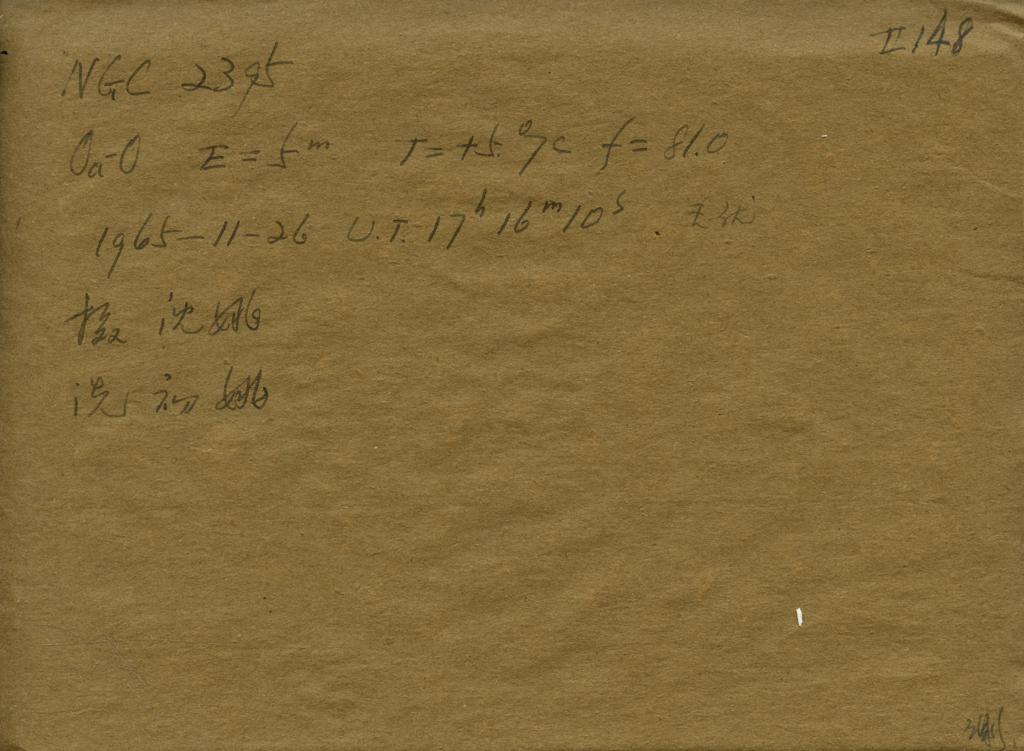 II 148
NGC 2395
Oa-O E = 5ᵐ T = +5.°7C f = 81.0
1965-11-26 U.T. 17ʰ16ᵐ10ˢ
摄 沈姚
洗 初姚